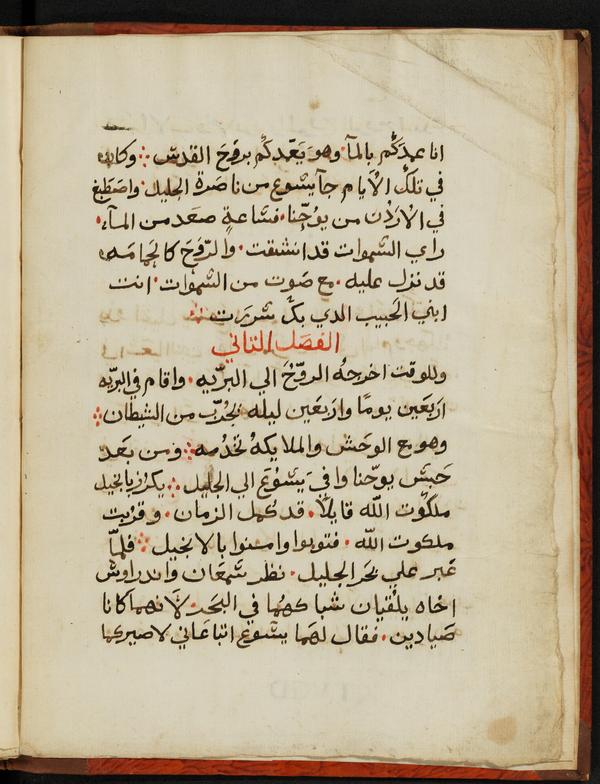 انا عمدكم بالمآ. وهو يعمدكم بروح القدس ܀ وكان
في تلك الايام جآ يشوع من ناصرة الجليل. واصطبغ
في الاردن من يوحنا. فساعة صعد من المآء.
راي السموات قد انشقت. والروح كالحمامه
قد نزل عليه. مع صوت من السموات. انت
ابني الحبيب الدي بك سررت ܀
الفصل التاني
وللوقت اخرجه الروح الي البريه. واقام في البريه
اربعين يومًا واربعين ليله يُجرّب من الشيطان ܀
وهو مع الوحش والملايكه تُخدُمه ܀ ومن بعد
حبس يوحنا وافي يشوع الي الجليل ܀ يكرز بانجيل
ملكوت الله قايلًا. قد كمل الزمان. وقربت
ملكوت الله. فتوبوا وامنوا بالانجيل ܀ فلمّا
عبر علي بحر الجليل. نظر سمعان واندراوس
اخاه يلقيان شباكهما في البحر. لانهما كانا
صيادين. فقال لهما يشوع اتبعاني لاصيركما